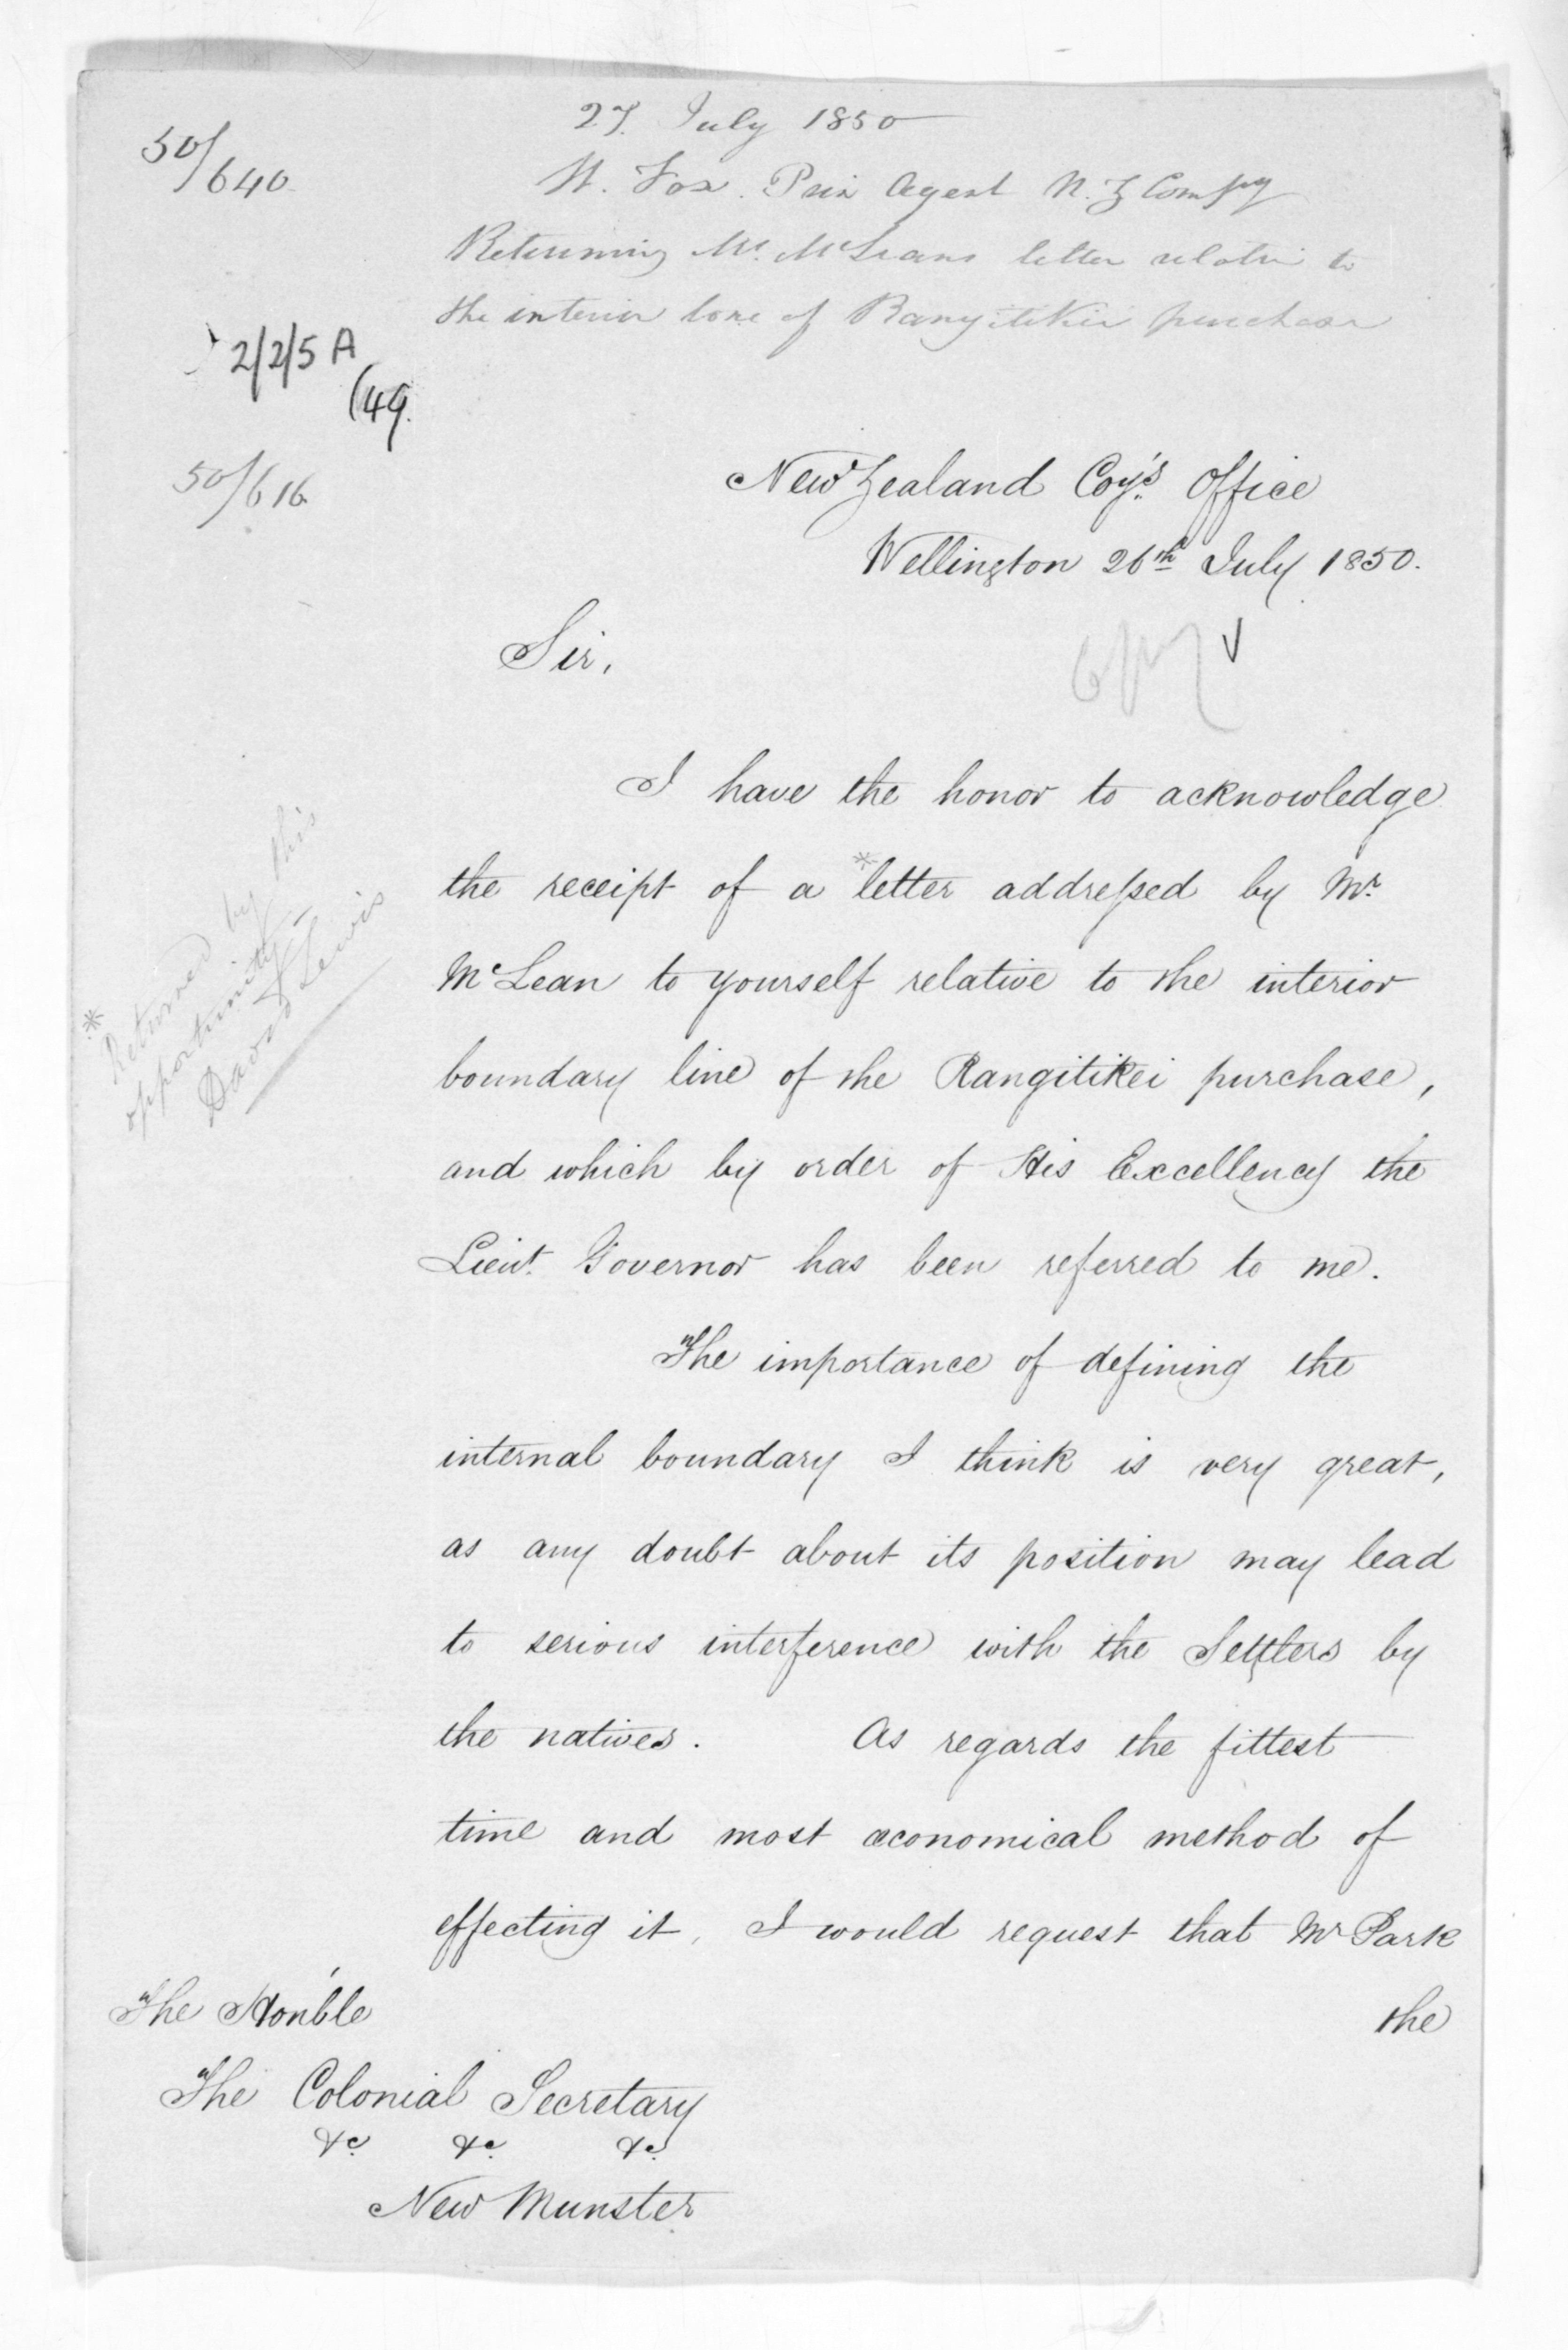 27. July 1850
50/640
W. Fox. Prin Agent N.Z Compy
Returning Mr. McLeans letter relative to
the interior line of Rangitikei purchase
2/2/5 A
(49.
50/616
New Zealand Coy's. Office
Wellington 26th July 1850.
Sir,
I have the honor to acknowledge
the receipt of a *letter addressed by Mr.
McLean to yourself relative to the interior
boundary line of the Rangitikei purchase,
and which by order of His Excellency the
Lieut. Governor has been referred to me.
* Returned by this
opportunity-
David Lewis
The importance of defining the
internal boundary I think is very great,
as any doubt about its position may lead
to serious interference with the Settlers by
the natives. As regards the fittest
time and most œconomical method of
effecting it, I would request that Mr Park
the
The Hon'ble
The Colonial Secretary
&c. &c. &c.
New Munster